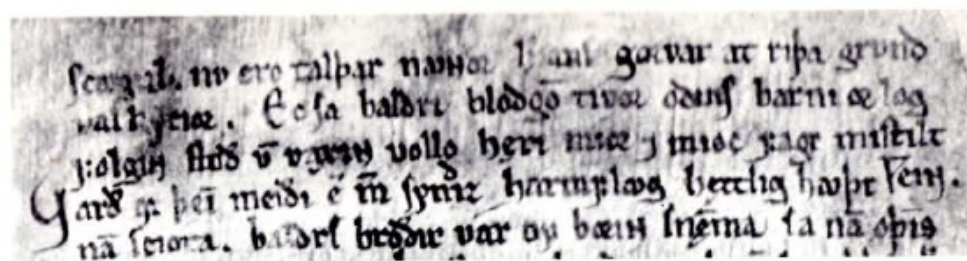 scogul. nv ero talþar naɴor h ianſ gorvar at riþa grvnd
valkyrior. Ec ſa baldri blodgō tivor odinſ barni ørlog
ꝼolgiɴ ſtoð v̄ vaxiɴ vollo heri mior ⁊ mioc ꝼagr miſtilt
varð aꝼ þeī meiði ē m̄ ſyndiz harmꝼlavg hettlig havþr
nā ſciota. baldrſ broðir var oꝼ boriɴ ſnēma ſa nā oþīs